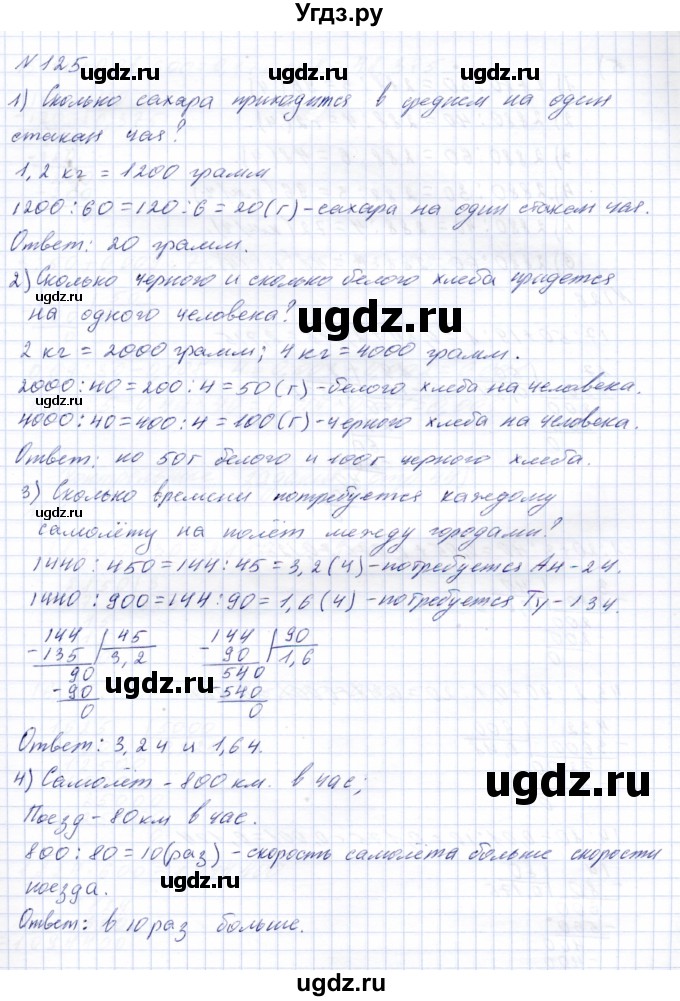 Угдз.ру
№125
1) Сколько сахара приходится в среднем на один
стакан чая?
1,2 кг = 1200 грамм
1200:60=120:6=20(г)-сахара на один стакан чая.
Ответ: 20 грамм.
2) Сколько черного и сколько белого хлеба придется
на одного человека?
2 кг = 2000 грамм; 4 кг = 4000 грамм.
2000:40=200:4=50(г)-белого хлеба на человека.
4000:40=400:4=100(г)-черного хлеба на человека.
Ответ: по 50г белого и 100г черного хлеба.
3) Сколько времени потребуется каждому
самолёту на полёт между городами?
1440:450=144:45=3,2(ч)-потребуется Ан-24.
1440:900=144:90=1,6(ч)-потребуется Ту-134.
144 45 144 90
-135 3,2 - 90 1,6
90 540
-90 -540
0 0
Ответ: 3,2ч и 1,6ч.
4) Самолёт - 800 км. в час;
Поезд - 80 км в час.
800:80=10(раз)-скорость самолёта больше скорости
поезда.
Ответ: в 10 раз больше.
ugdz.ru
ugdz.ru
ugdz.ru
ugdz.ru
ugdz.ru
ugdz.ru
ugdz.ru
ugdz.ru
ugdz.ru
ugdz.ru
ugdz.ru